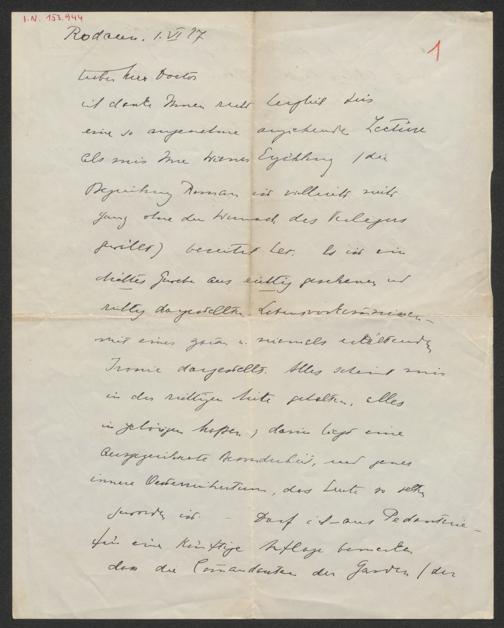 I.N. 152.944
1
Rodaun. 1. VI 27
Lieber Herr Doctor
ich danke Ihnen recht herzlich dass
eine so angenehme anziehende Lectüre
als mir Ihre Wiener Erzählung / die
Bezeichnung Roman ist vielleicht nicht
ganz ohne den Wunsch des Verlegers
gewählt) bereitet hat. Es ist ein
Ganze aus richtig gesehenen und
richtig dargestellten Lebensvorkommnissen
mit einer guten u. niemals
Ironie dargestellt. Alles scheint mir
in der richtigen Mitte gehalten, alles
in gehörigen; darin liegt eine
ausgezeichnete, und jenes
innere Oesterreichertum, das heute so selten
geworden ist – Darf ich – aus Pedanterie –
für eine künftige Auflage bemerken
dass die Comandanten der Garden / der